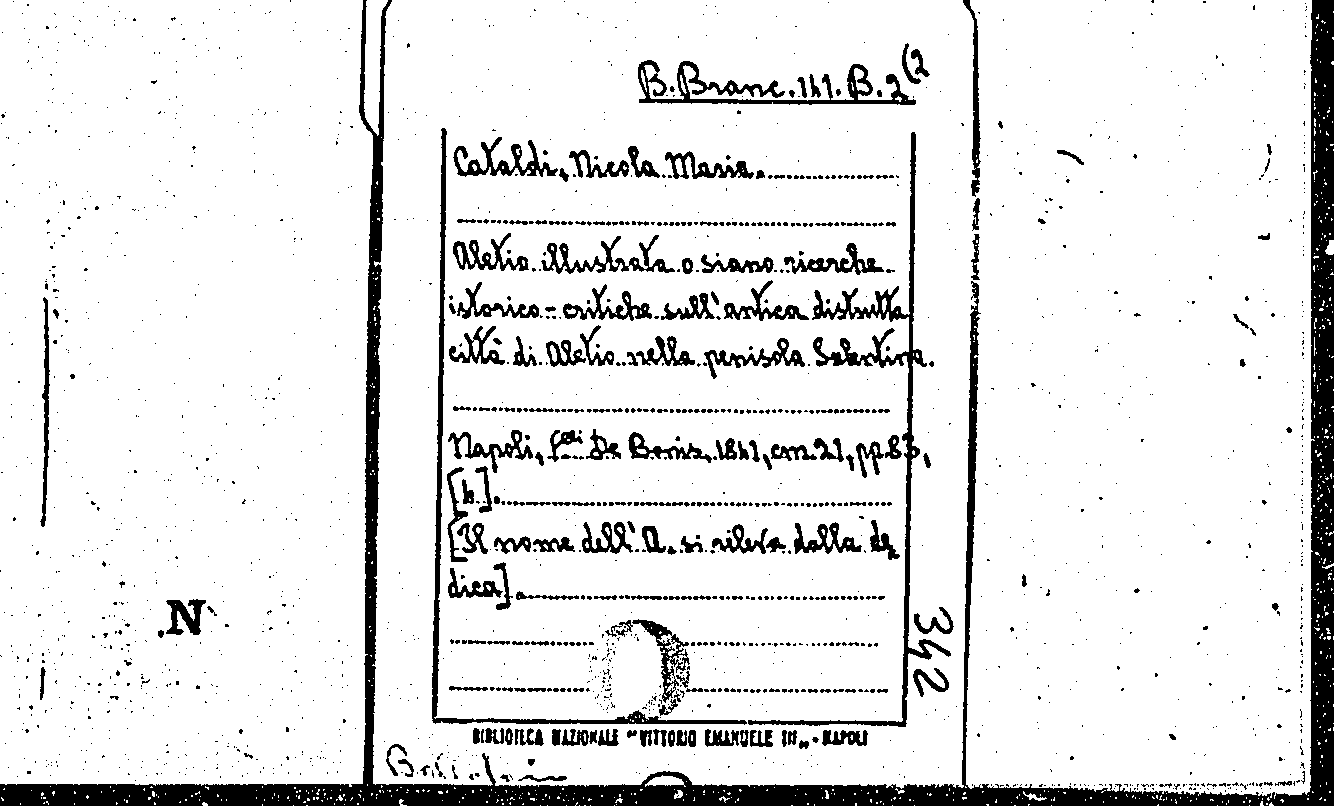 B. Branc. 141. B. 2(2
Cataldi, Nicola Maria.
Aletio illustrata o siano ricerche
istorico-critiche sull'antica distrutta
città di Aletio nella penisola Salentina.
Napoli, f.lli De Bonis, 1841, cm. 21, pp. 83,
[4].
[Il nome dell'A. si rileva dalla de
dica].
N
342
BIBLIOTECA NAZIONALE "VITTORIO EMANUELE III" - NAPOLI